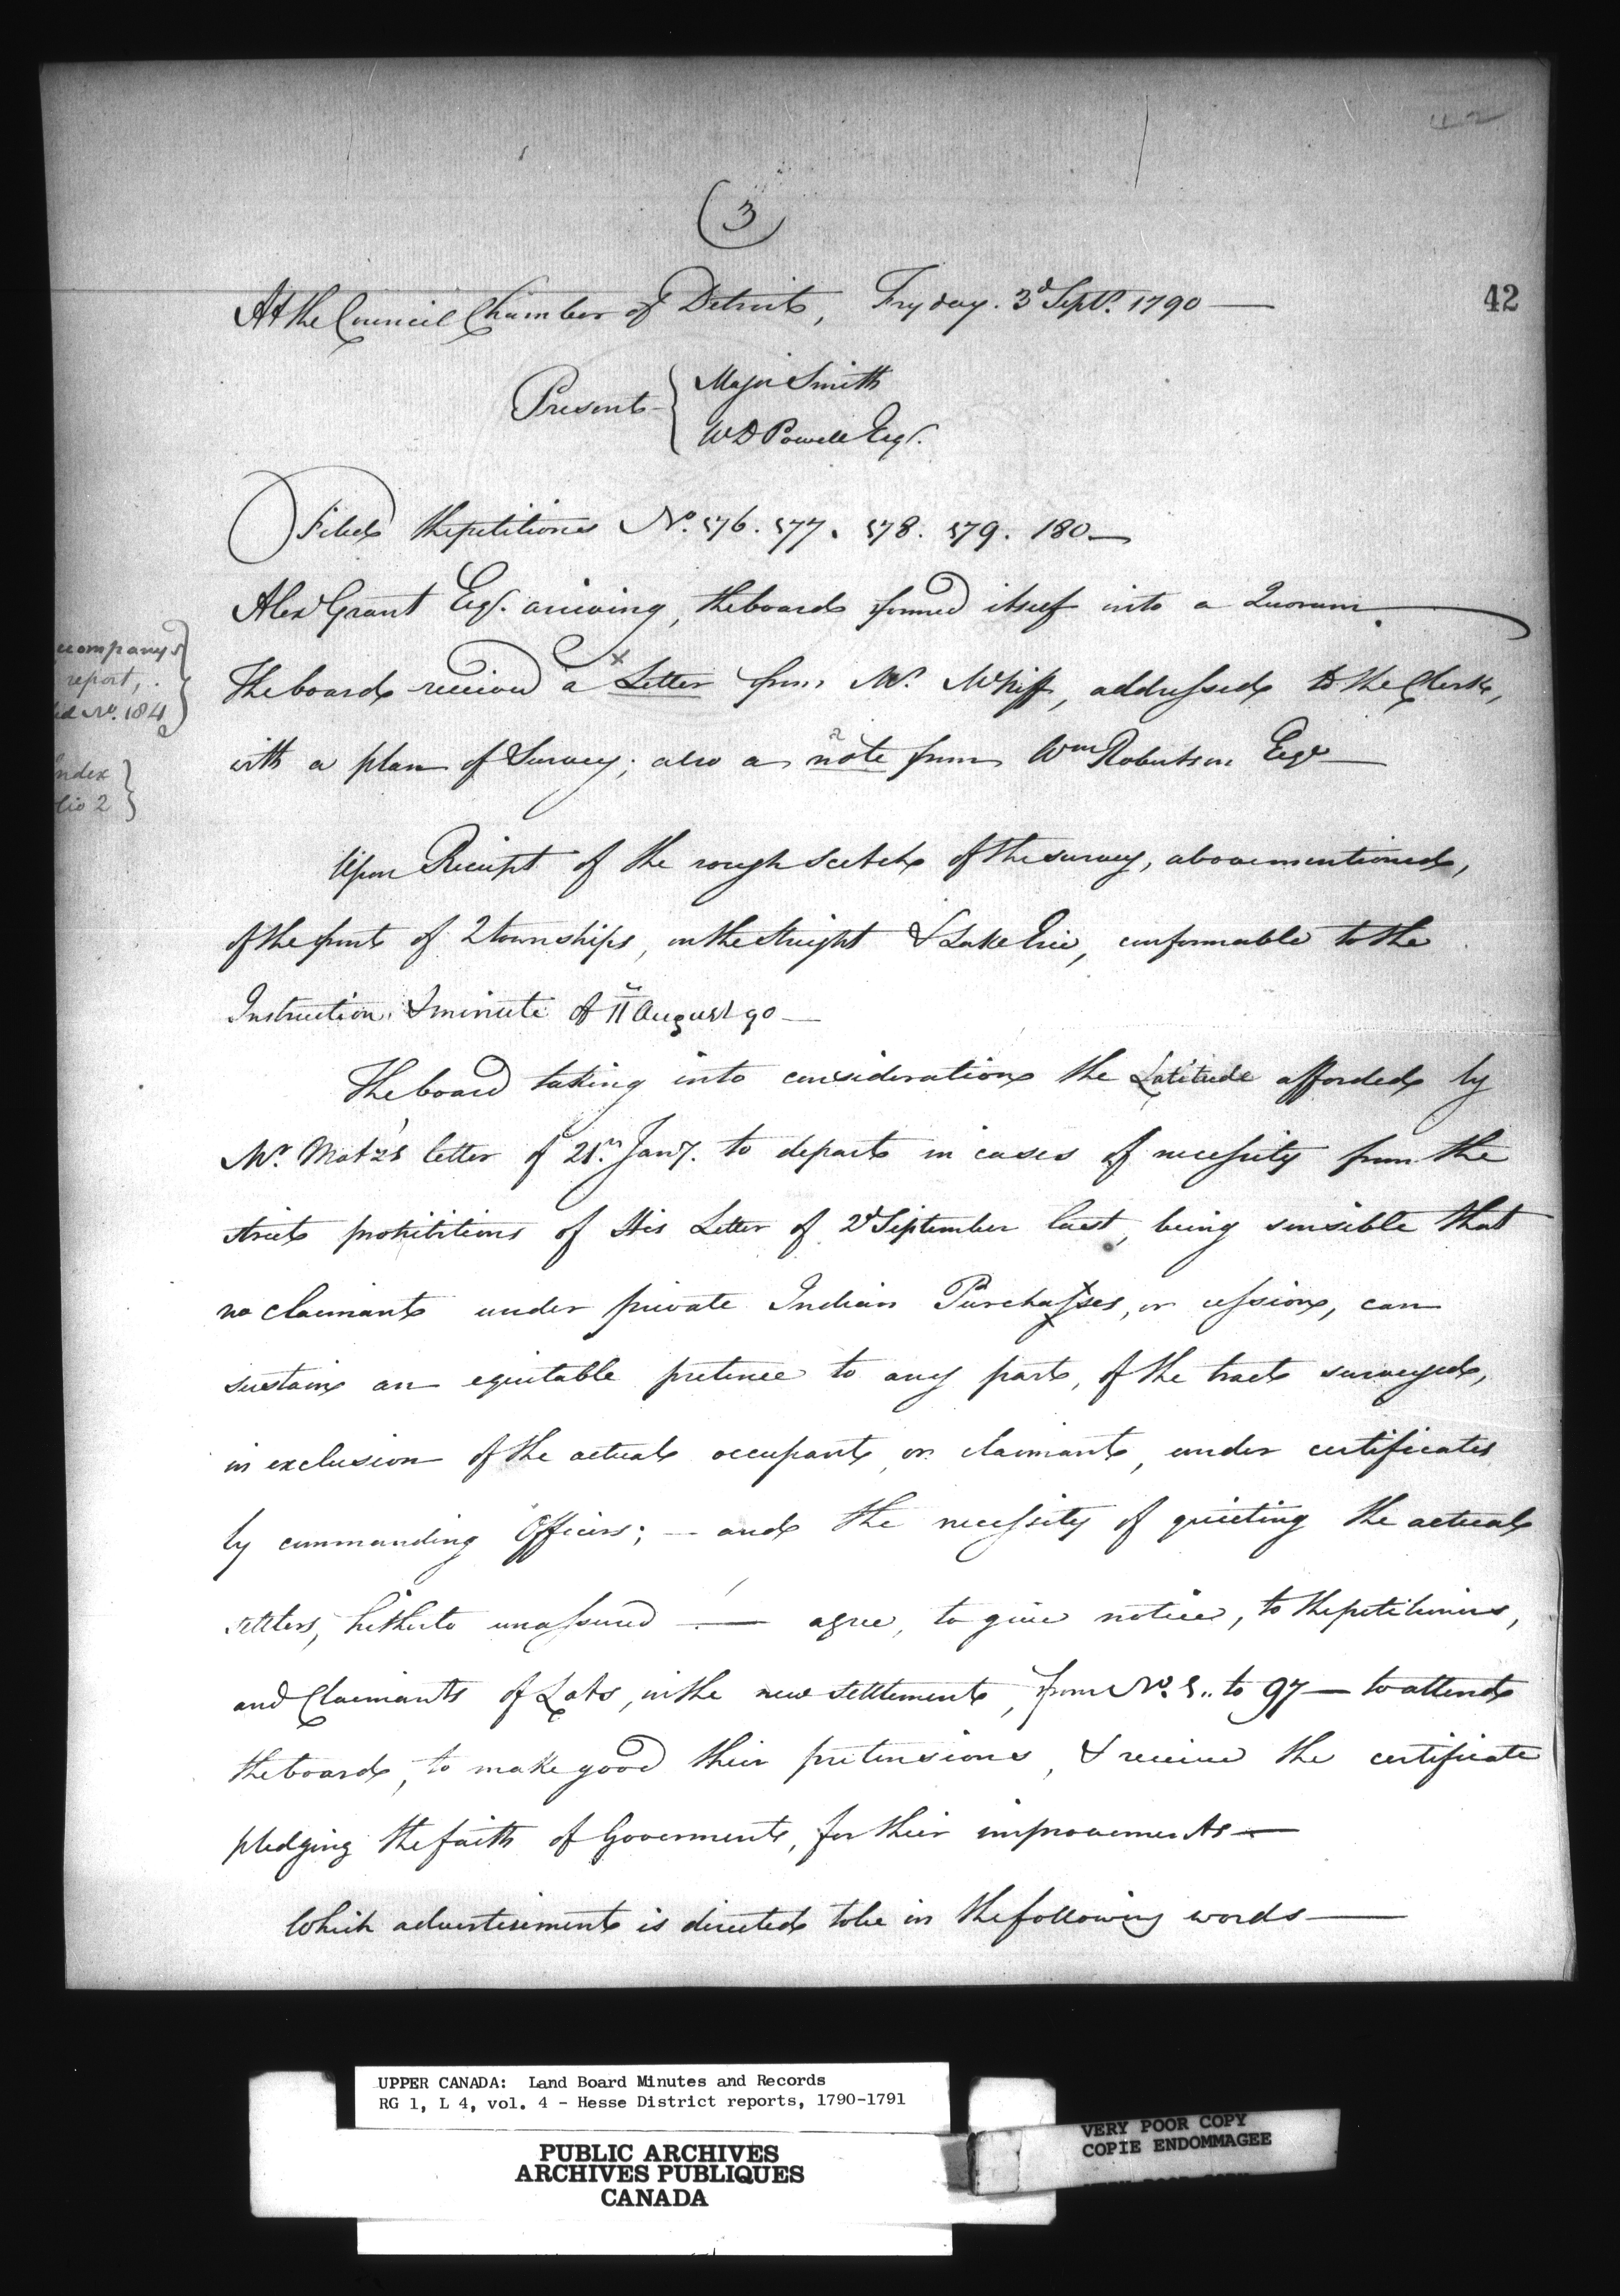 42
(3)
At the Council Chamber of Detroit, Fryday. 3d Septr. 1790 —
42
Present { Major Smith
W D Powell Esqr.
Filed the petitions No. 176. 177. 178. 179. 180 —
Alexr Grant Esqr. arriving, the board formed itself into a Quorum.
ccompanys
report,
ed No. 184 }
The board received a Letter from Mr. McNiff, addressed to the Clerk,
with a plan of Survey; also a note from Wm Robertson Esqr —
ndex
lio 2 }
Upon Receipt of the rough scetch of the survey, abovementioned,
of the front of 2 townships, on the Streight & Lake Erie, conformable to the
Instruction & minute of 11 August 90 —
The board taking into consideration the Latitude afforded by
Mr. Motz's letter of 21. Jany. to depart in cases of necessity from the
strict prohibitions of His Letter of 2d September last, being sensible that
no claimant under private Indian Purchasses, or cession, can
sustain an equitable pretence to any part, of the tract surveyed,
in exclusion of the actual occupant, or claimant, under certificates
by commanding Officers; — and the necessity of quieting the actual
settlers, hitherto unassured — agree, to give notice, to the petitioners,
and Claimants of Lots, in the new settlement, from No. 1.. to 97 — to attend
the board, to make good their pretensions, & receive the certificate
pledging the faith of Goverment, for their improvements —
Which advertisement is directed to be in the following words —
UPPER CANADA: Land Board Minutes and Records
RG 1, L 4, vol. 4 - Hesse District reports, 1790-1791
PUBLIC ARCHIVES
ARCHIVES PUBLIQUES
CANADA
VERY POOR COPY
COPIE ENDOMMAGEE